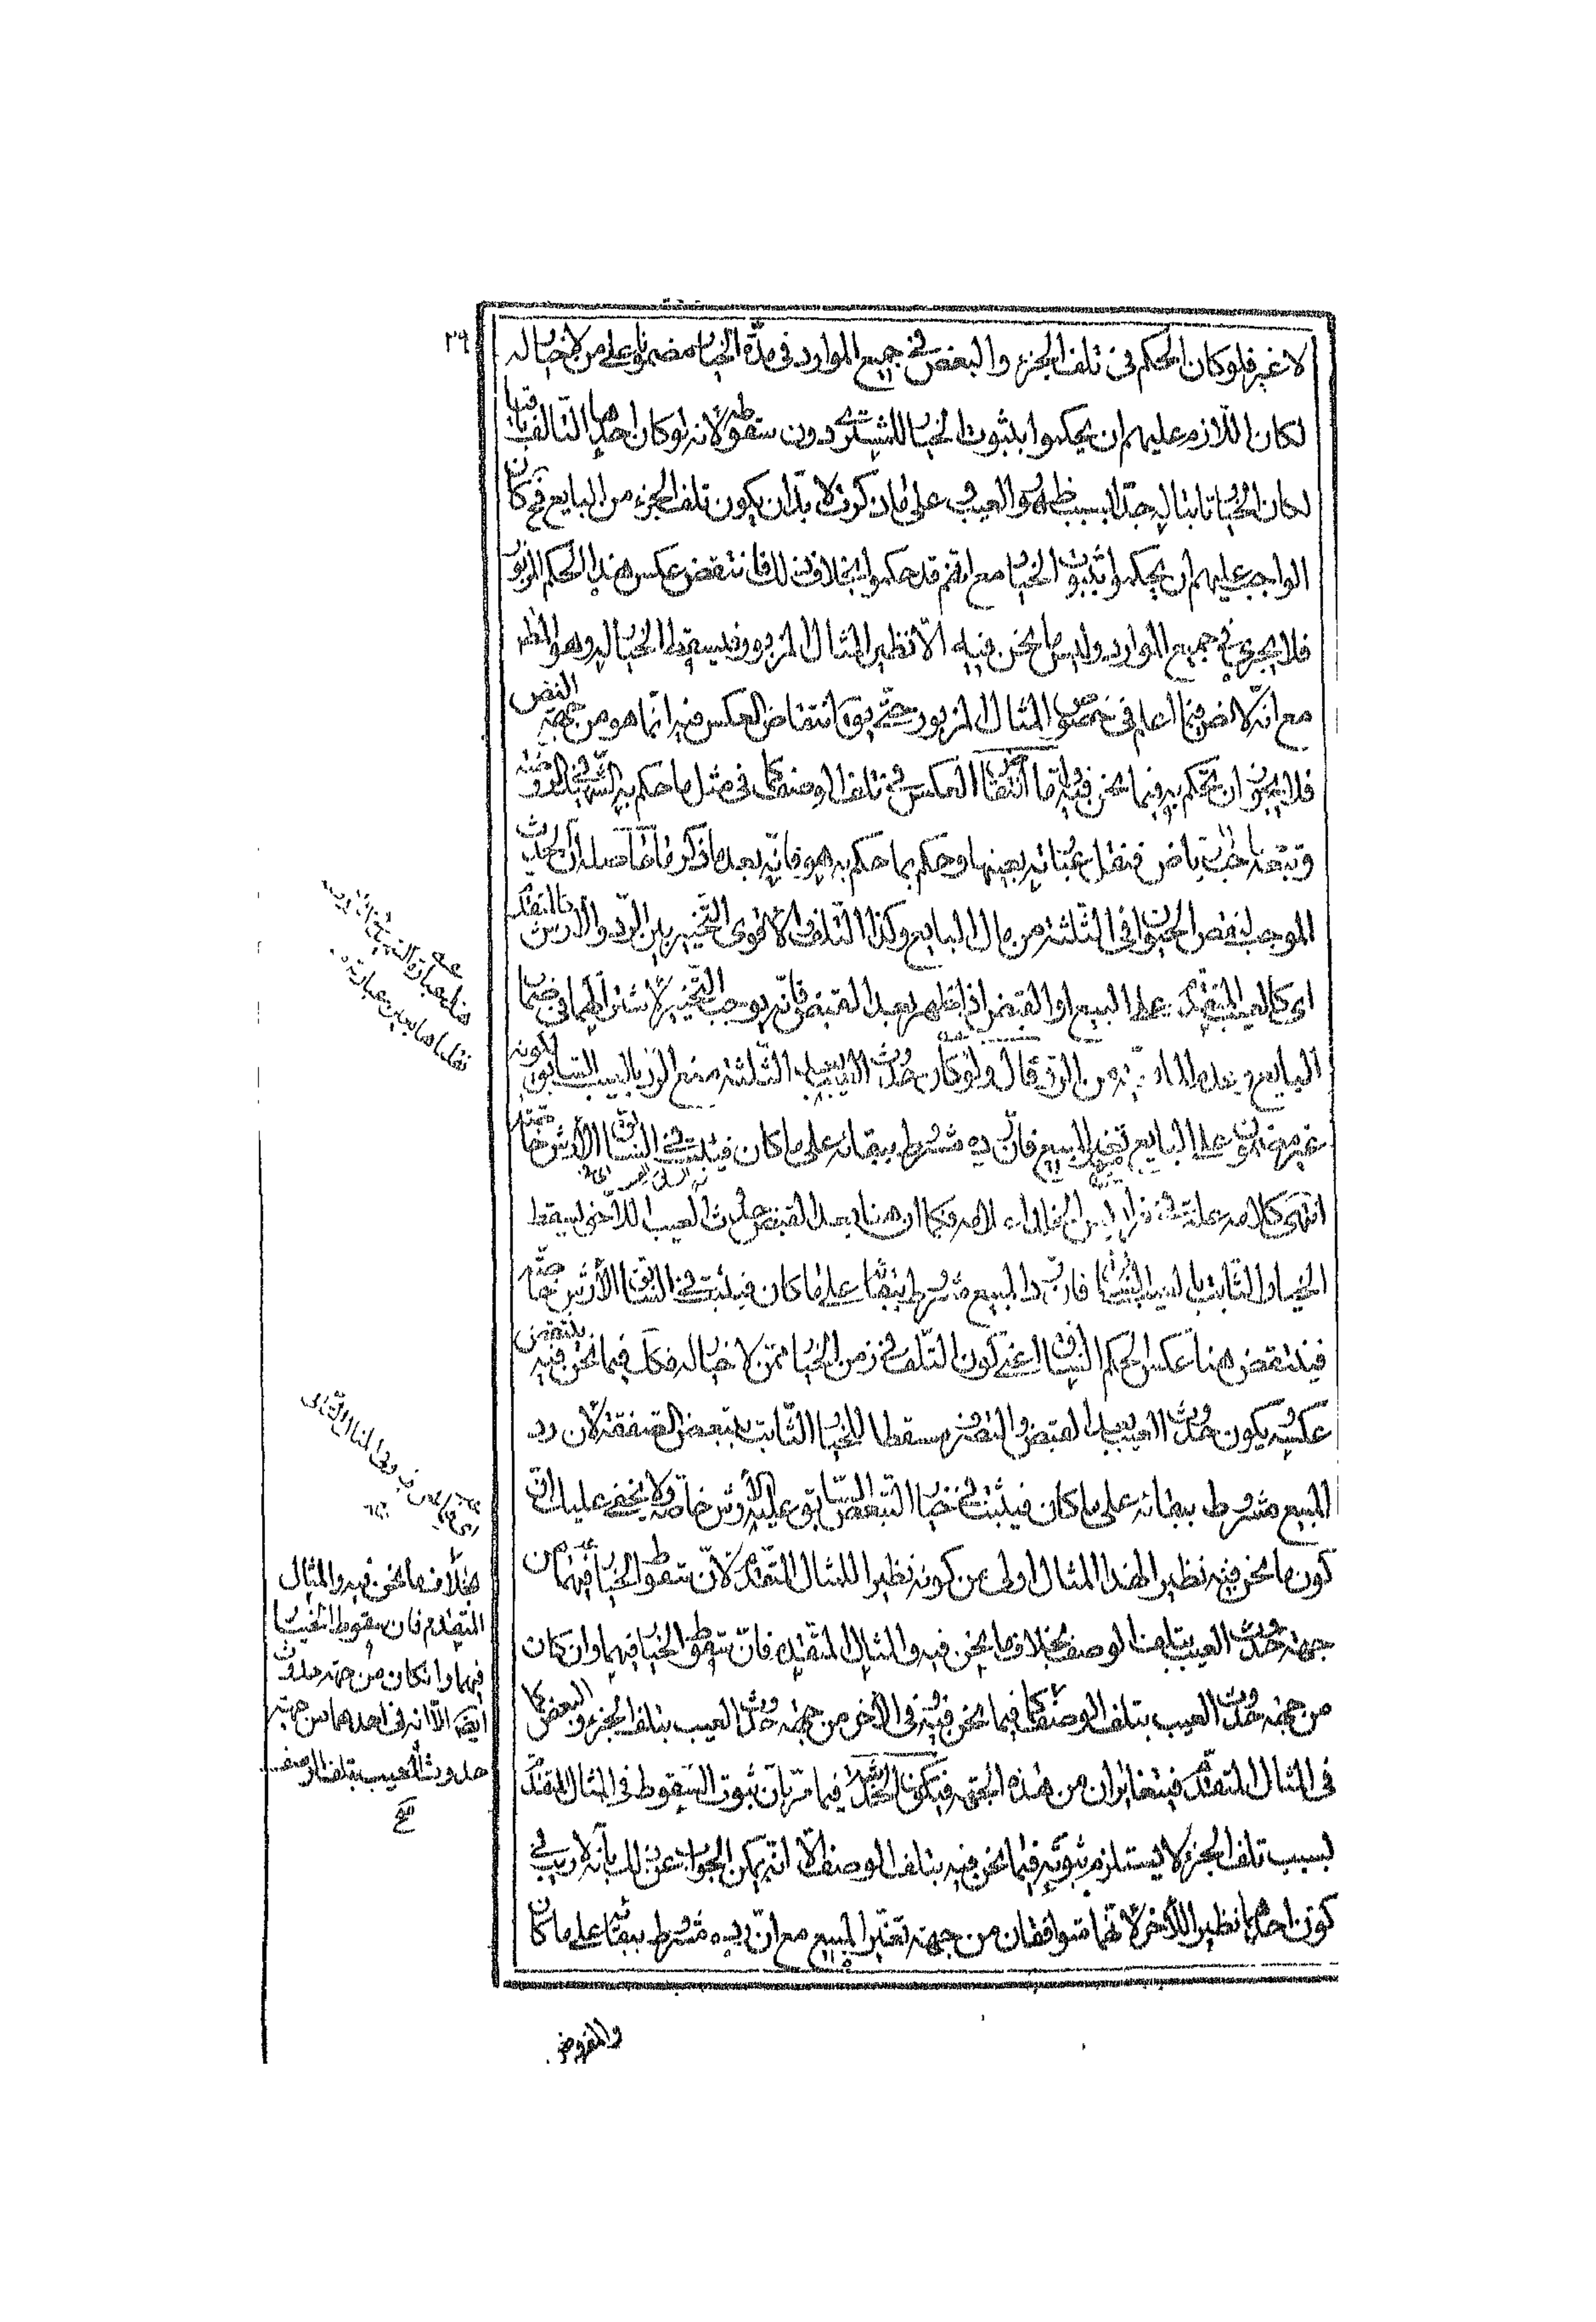 ٣٩
لا غير فلو كان الحكم فى تلف الجزء والبعض فى جميع الموارد فى مدّة الخيار مضمونا على من لا خيار له
لكان اللّازم عليهم ان يحكموا بثبوت الخيار للمشترى دون سقوطه لانه لو كان احدهما التالف باقيا
لكان الخيار ثابتا له جدّا بسبب ظهور العيب على فلابدّ ان يكون تلف الجزء من البايع فح كان
الواجب عليهم ان يحكموا بثبوت الخيار مع انّهم قد حكموا بخلاف ذلك فانتقض عكس هذا الحكم المزبور
فلا يجرى فى جميع الموارد وليس ما نحن فيه الّا نظير المثال المزبور فيسقط الخيار له وهو المط
مع انّه لا نص فيما اعلم فى خصوص المثال المزبور حتّى يق انتقاض العكس فيه انّما هو من جهة النص
فلا يجوز ان يحكم به فيما نحن فيه وامّا انتقاض العكس فى تلف الوصف كما فى مثل ما حكم به الشهيد فى الروضة
وتبعه صاحب ياض فنقل عبارته بعينها وحكم بما حكم به هو فانّه بعد ما ذكر ما حاصله ان الحدث
الموجب لنقص الحيوان فى الثلثة من مال البايع وكذا التلف والاقوى التخيير بين الردّ والارش كالمتقدّم
اى كالعيب المتقدّم على البيع او القبض اذا ظهر بعد القبض فانّه يوجب التّخيير لاشتراكهما فى ضمان
البايع وعدم المانعية من الردّ قال ولو كان حدوث العيب بعد الثّلثة منع الردّ بالعيب السابق لكونه
غير مضمون على البايع تغير المبيع فانّ ردّه مشروط ببقائه على ما كان فيثبت فى السابق الأرش خاصّة
انتهى كلامه فكما ان هنا بعد القبض حدوث العيب الاخر يسقط
الخيار الثّابت بالعيب السابق فان ردّ المبيع مشروط ببقائه على ما كان فيثبت فى السابق الأرش خاصّة
فينتقض هنا عكس الحكم السابق اعنى كون التلف فى زمن الخيار ممّن لا خيار له فكك فيما نحن فيه ينتقض
عكسه يكون حدوث العيب بعد القبض والتصرف مسقطا للخيار الثّابت بتبعض الصفقة لان رد
المبيع مشروط ببقائه على ما كان فيثبت فى خيار التبعض السابق عليه الأرش خاصّة ولا يخفى عليك انّ
كون ما نحن فيه نظيرا لهذا المثال اولى من كونه نظيرا للمثال المتقدّم لانّ سقوط الخيار فيهما من
جهة حدوث العيب بتلف الوصف بخلاف ما نحن فيه والمثال المتقدّم فانّ سقوط الخيار فيهما وان كان
من جهة حدوث العيب بتلف الوصف كما فيما نحن فيه وفى الآخر من جهة حدوث العيب بتلف الجزء والبعض كما
فى المثال المتقدّم فيتغايران من هذه الجهة فيمكن الخدشة فيما مرّ بانّ ثبوت السّقوط فى المثال المتقدّم
بسبب تلف الجزء لا يستلزم ثبوته فيما نحن فيه بتلف الوصف الّا انّه يمكن الجواب عن ذلك بأنّه لا ريب فى
كون احدهما نظيرا للآخر لانّهما متوافقان من جهة تغيّر المبيع مع انّ ردّه مشروط ببقائه على ما كان
والمفروض
هذه عبارة
نقلناها بعين عبارته
بخلاف ما نحن فيه والمثال
المتقدم فان سقوط الخيار
فيهما وان كان من جهة حدوث
الّا انه فى احدهما من جهة
حدوث العيب بتلف الوصف
صح